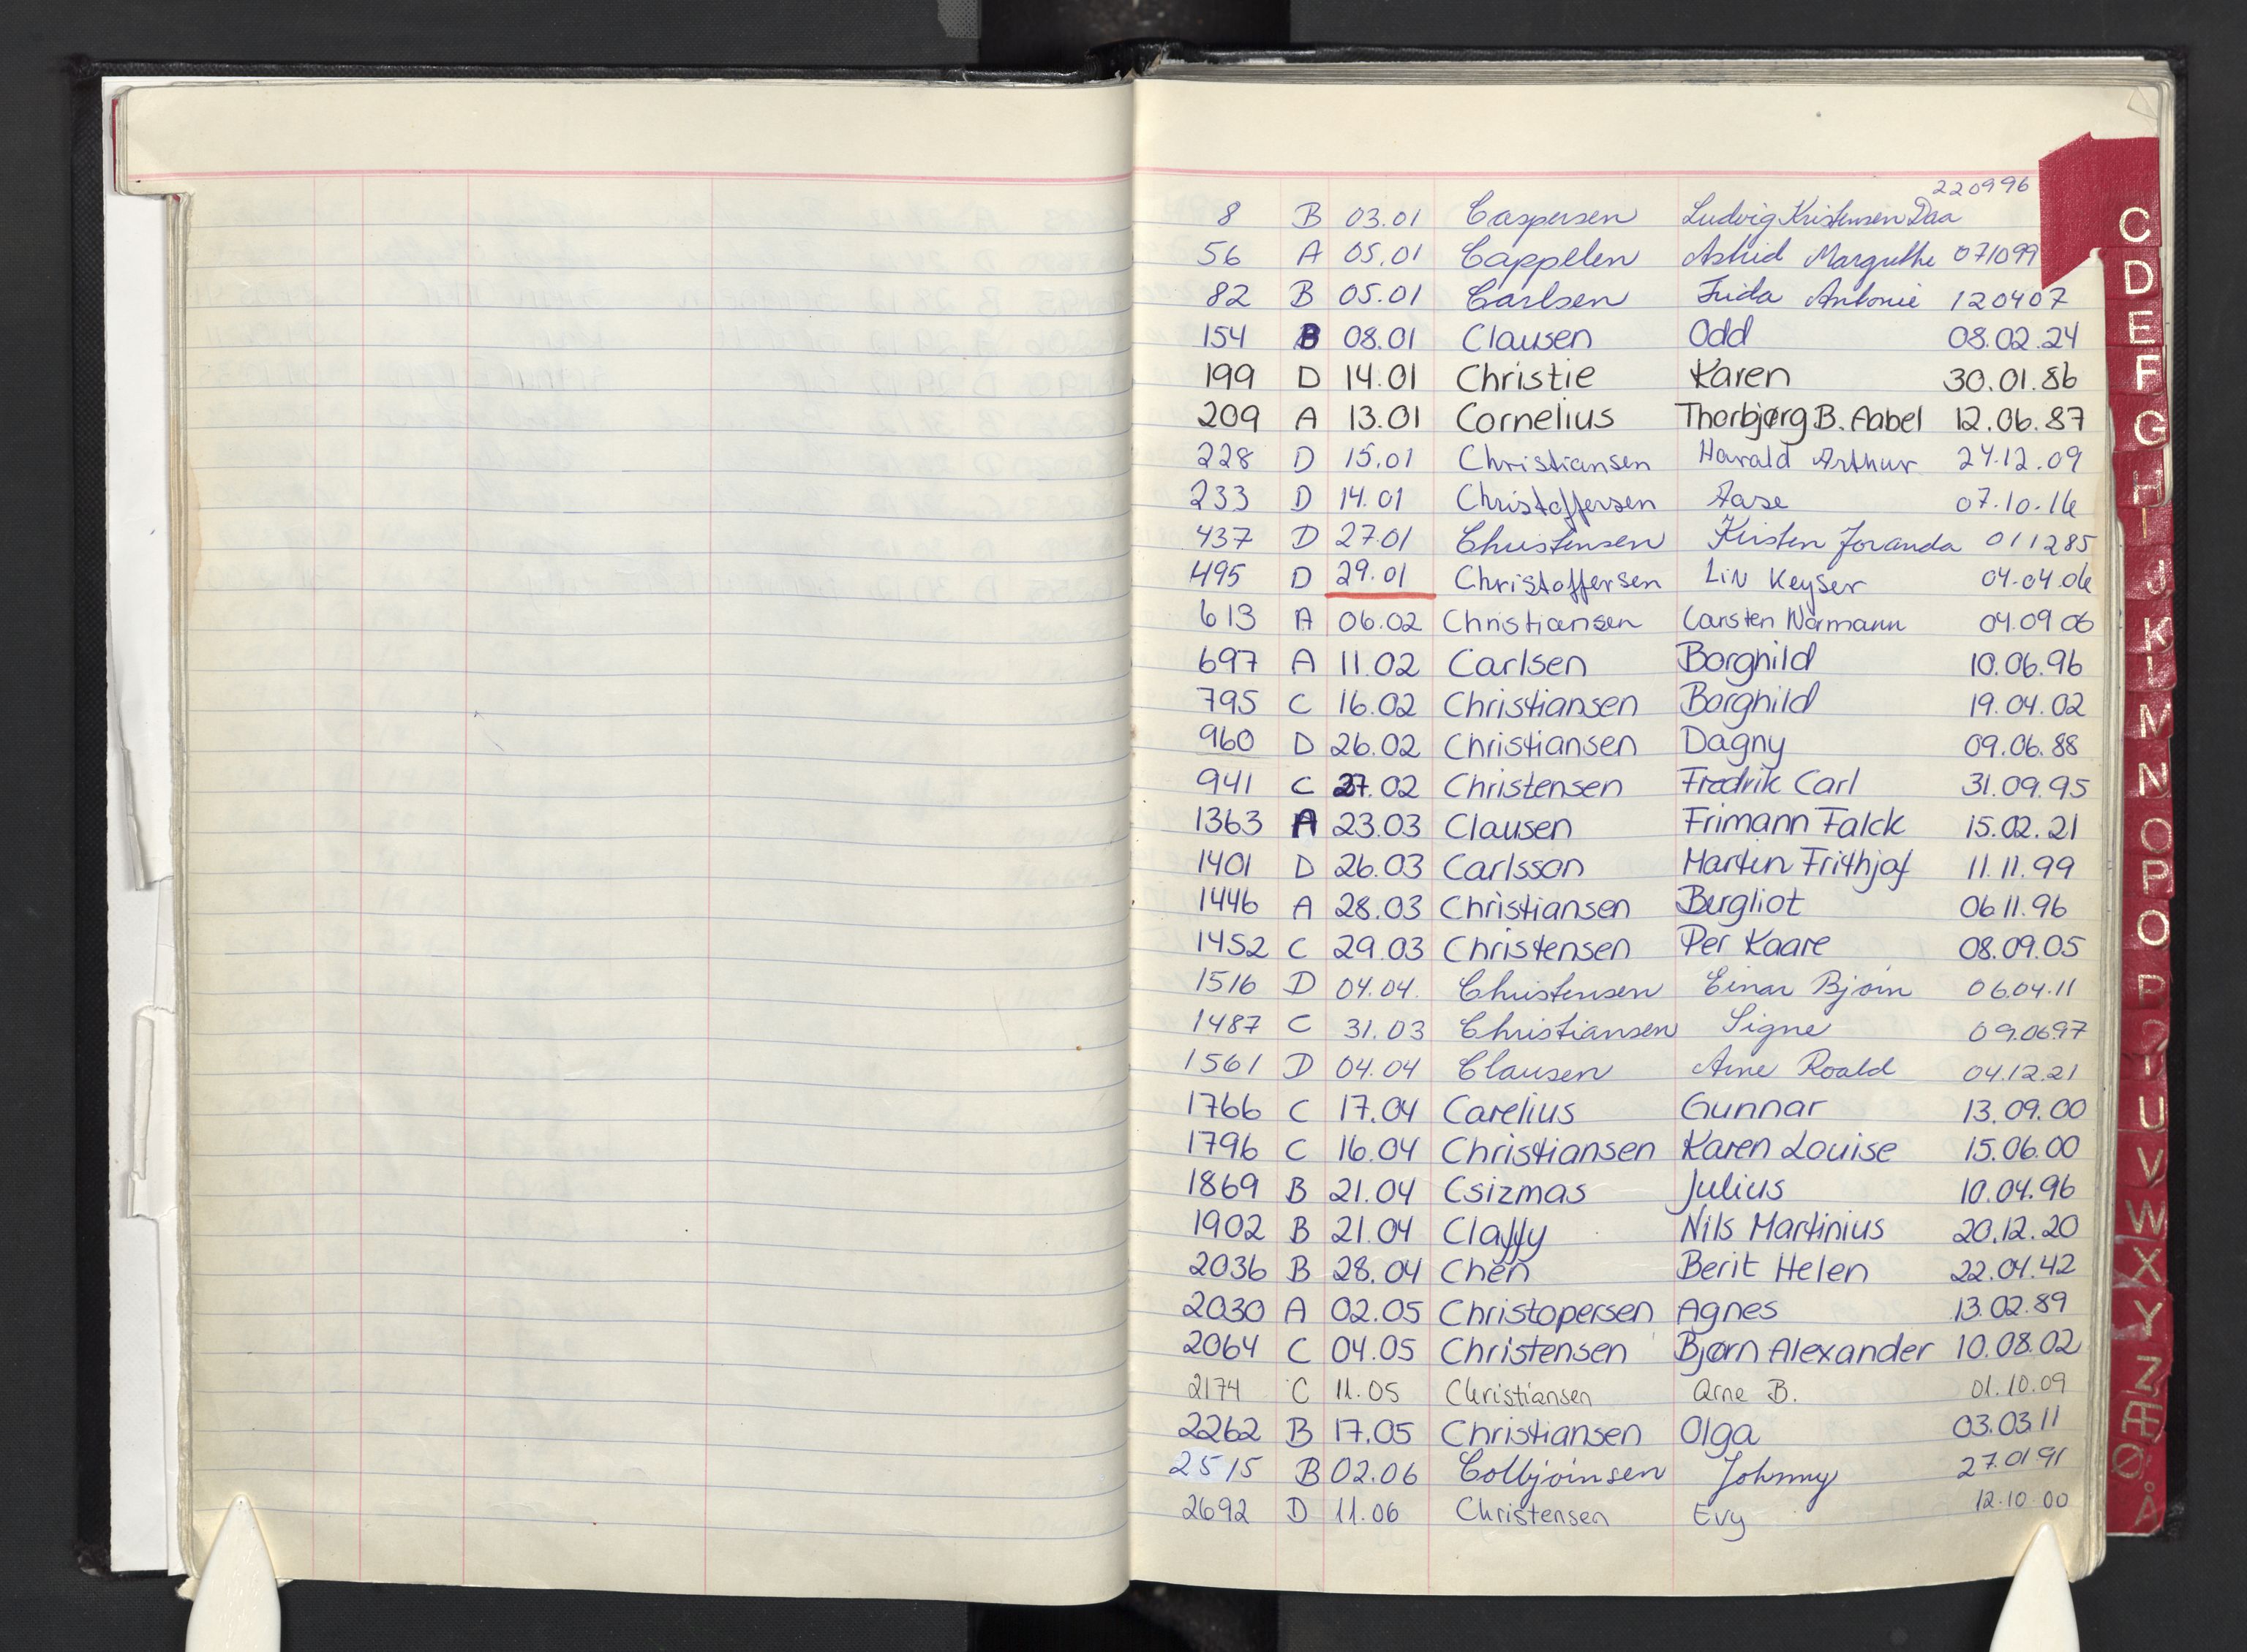 220996
8 B 03.01 Caspersen Ludvig Kristensen Daa
56 A 05.01 Cappelen Astrid Margrethe 071099
82 B 05.01 Carlsen Frida Antonie 120407
154 B 08.01 Clausen Odd 08.02.24
199 D 14.01 Christie Karen 30.01.86
209 A 13.01 Cornelius Thorbjørg B. Aabel 12.06.87
228 D 15.01 Christiansen Harald Arthur 24.12.09
233 D 14.01 Christoffersen Aase 07.10.16
437 D 27.01 Christensen Kirsten Joranda 011285
495 D 29.01 Christoffersen Lin Keyser 04.04.06
613 A 06.02 Christiansen Carsten Normann 04.09 06
697 A 11.02 Carlsen Borghild 10.06.96
795 C 16.02 Christiansen Borghild 19.04.02
960 D 26.02 Christiansen Dagny 09.06.88
941 C 27.02 Christensen Fredrik Carl 31.09.95
1363 A 23.03 Clausen Frimann Falck 15.02.21
1401 D 26.03 Carlsson Martin Frithjof 11.11.99
1446 A 28.03 Christiansen Bergliot 06 11.96
1452 C 29.03 Christensen Per Kaare 08.09.05
1516 D 04.04. Christensen Einar Bjørn 06.04.11
1487 C 31.03 Christiansen Signe 09.0697
1561 D 04.04 Clausen Arne Roald 04.12.21
1766 C 17.04 Carelius Gunnar 13.09.00
1796 C 16.04 Christiansen Karen Louise 15.06.00
1869 B 21.04 Csizmas Julius 10.04.96
1902 B 21.04 Claffy Nils Martinius 20.12.20
2036 B 28.04 Chen Berit Helen 22.04.42
2030 A 02.05 Christopersen Agnes 13.02.89
2064 C 04.05 Christensen Bjørn Alexander 10.08.02
2174 C 11.05 Christiansen Arne B. 01.10.09
2262 B 17.05 Christiansen Olga 03.03.11
2515 B 02.06 Colbjørnsen Johnny 27.01 91
2692 D 11.06 Christensen Evy 12.10 00
C
D
E
F
G
H
I
J
K
L
M
N
O
P
O
P
U
V
W
X
Y
Z
Æ
Ø
Å